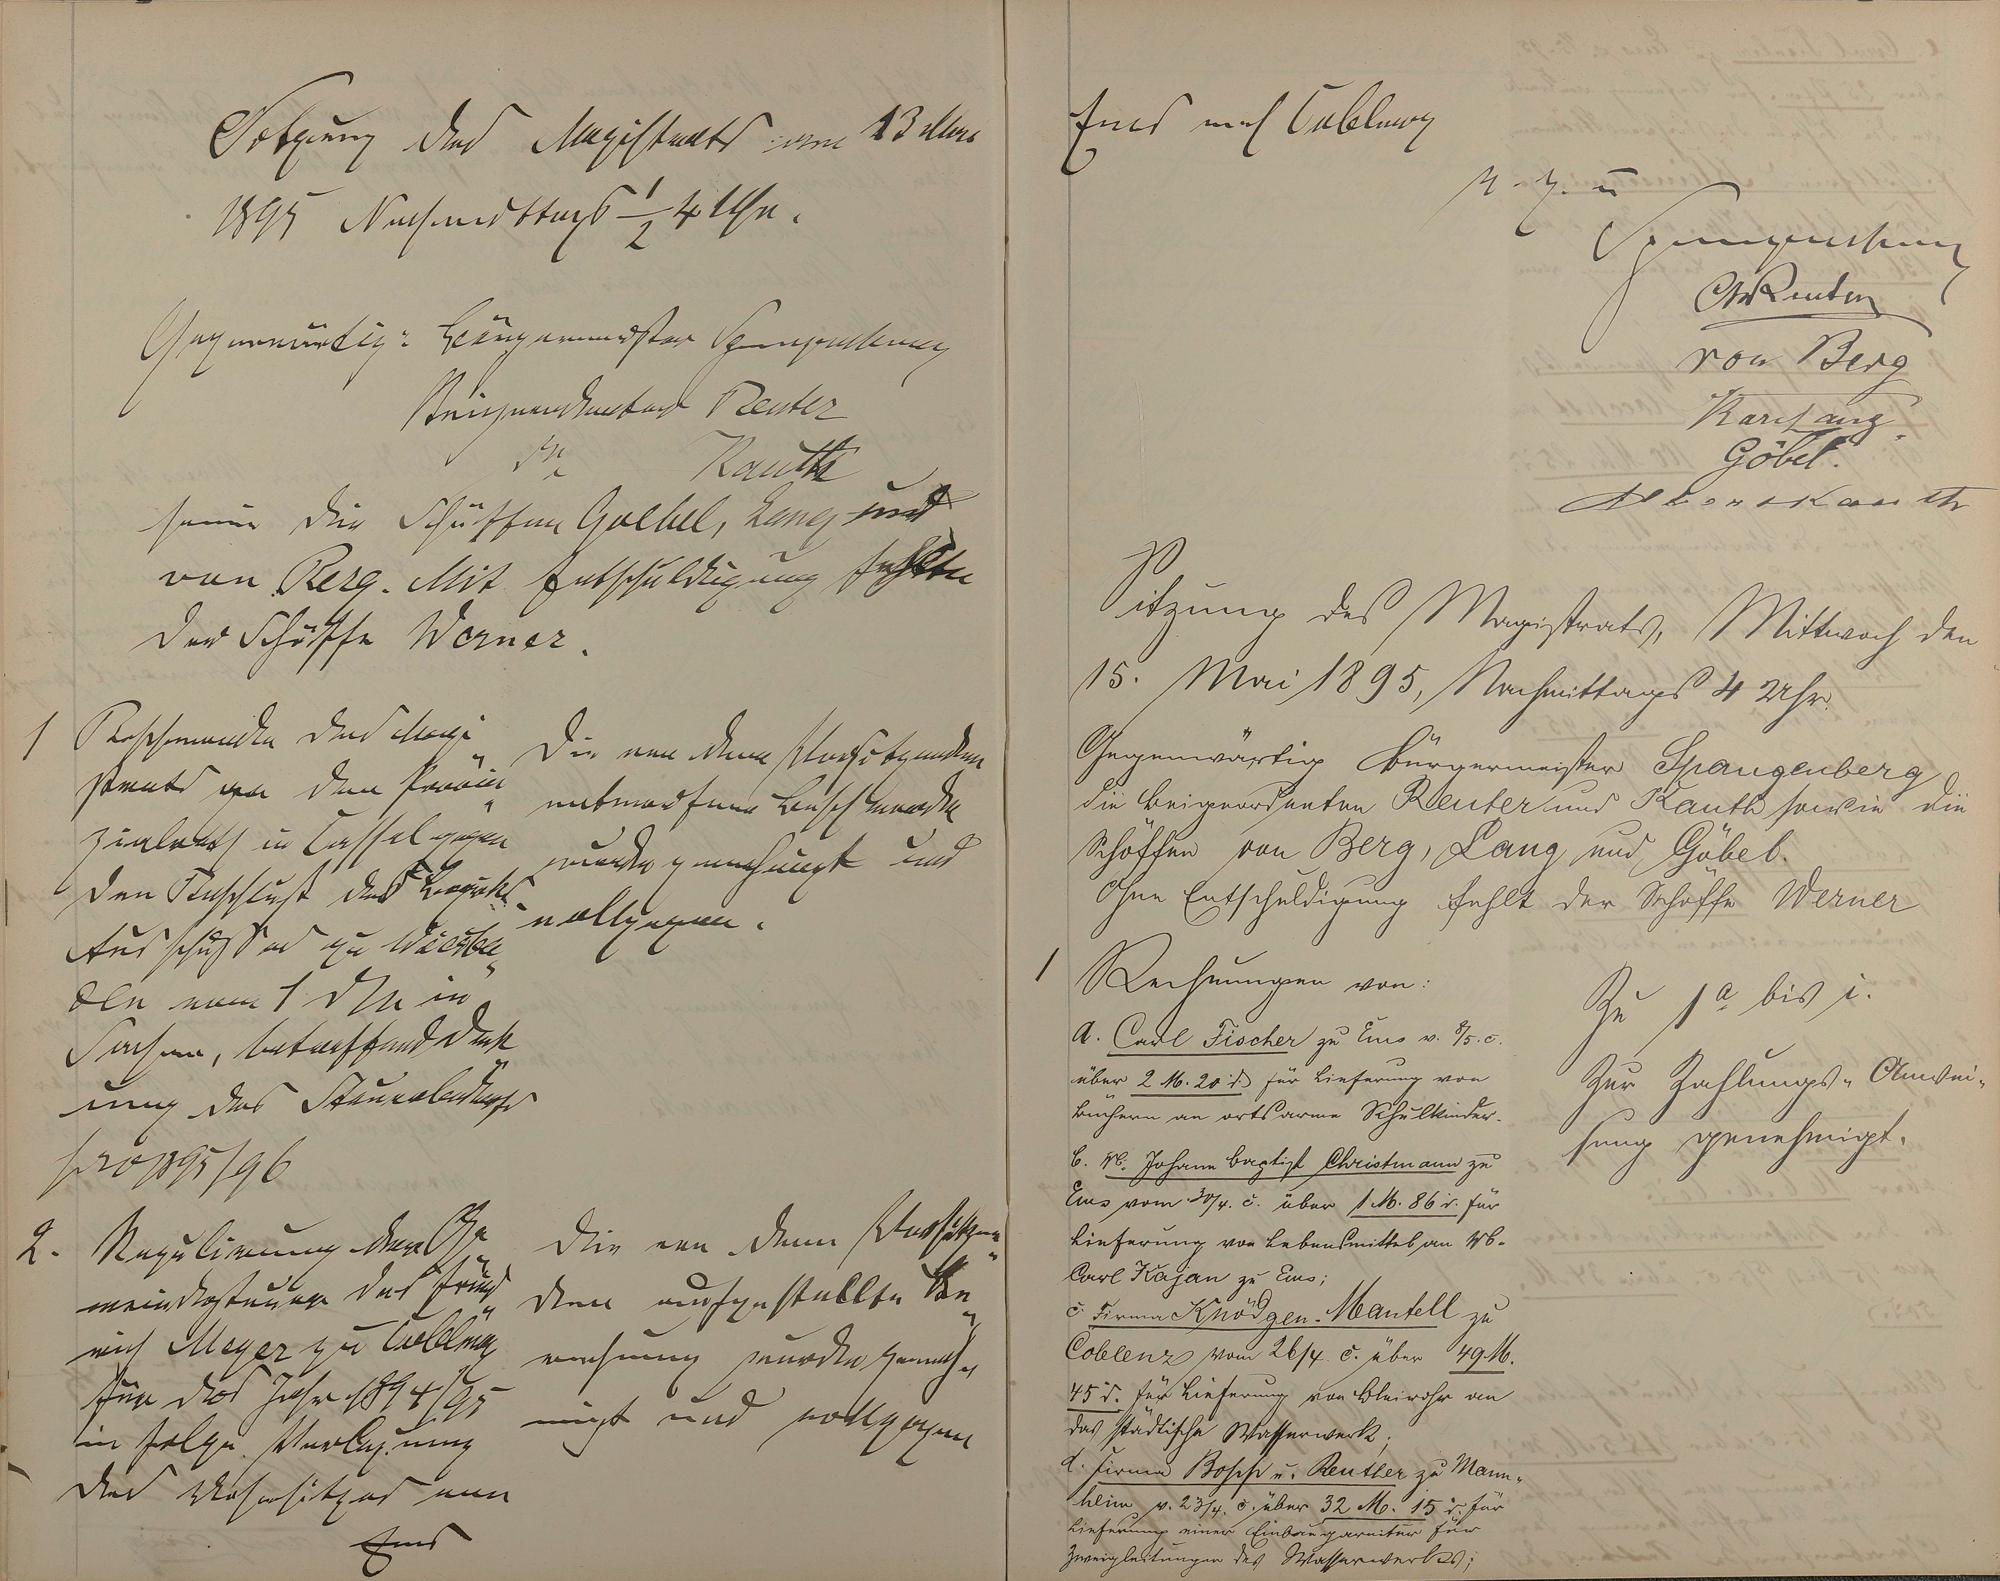 Sitzung des Magistrats vom 13 Mai
1895 Nachmittags 1/2 4 Uhr.
Gegenwärtig: Bürgermeister Spangenberg
Beigeordneter Reuter
Kauth
sowie die Schöffen Goebel, Lang und
von Berg. Mit Entschuldigung fehlte
der Schöffe Werner.
1 Beschwerde des Magi„
strats an den Provin„
zialrath in Cassel gegen
den Beschluß des Bezirks„
Ausschusses zu Wiesba„
den vom 1 d/M in
Sachen, betreffend Deck„
ung des Steuerbedarfs
pro 1895/96
Die von dem Vorsitzenden
entworfene Beschwerde
wurde genehmigt und
vollzogen.
2. Regulirung der Ge„
meindesteuer des Hein„
rich Meyer zu Coblenz
für das Jahr 1894/95
in Folge Verlegung
des Wohnsitzes von
Ems
Die von dem Vorsitzen„
den aufgestellte Be„
rechnung wurde geneh„
migt und vollzogen
Ems nach Coblenz
v. g. u
Spangenberg
Reuter
von Berg
Karl Lang.
Göbel.
Kauth
Sitzung des Magistrats, Mittwoch den
15. Mai 1895, Nachmittags 4 Uhr.
Gegenwärtig Bürgermeister Spangenberg
die Beigeordneten Reuter und Kauth sowie die
Schöffen von Berg, Lang und Göbel.
Ohne Entschuldigung fehlt der Schöffe Werner
1 Rechnungen von:
a. Carl Fischer zu Ems v. 8/5. c.
über 2 M. 20 d. für Lieferung von
Büchern an ortsarme Schulkinder.
b. Wb. Johann Baptist Christmann zu
Ems vom 30/4. c. über 1 M. 86 d. für
Lieferung von Lebensmittel an Wb.
Carl Kajan zu Ems;
c. Firma Knödgen-Mantell zu
Coblenz vom 26/4. c. über 49 M.
45 d. für Lieferung von Bleirohr an
das städtische Wasserwerk;
d. Firma Bopp u. Reuther zu Mann„
heim v. 23/4. c. über 32 M. 15 d. für
Lieferung einer Einbaugarnitur für
Zweigleitungen des Wasserwerkes;
Zu 1a bis i.
Zur Zahlungs„Anwei„
sung genehmigt.